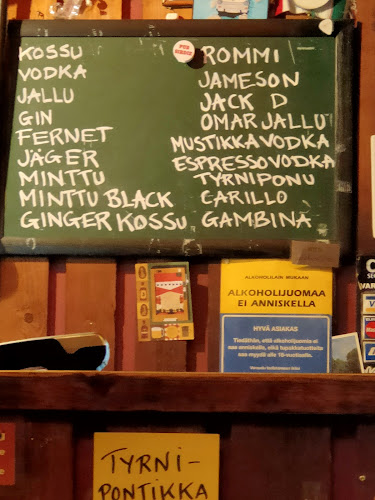 KOSSU
VODKA
JALLU
GIN
FERNET
JÄGER
MINTTU
MINTTU BLACK
GINGER KOSSU
ROMMI
JAMESON
JACK D
OMAR JALLU
MUSTIKKAVODKA
ESPRESSOVODKA
TYRNIPONU
CARILLO
GAMBINA
ALKOHOLILAIN MUKAAN
ALKOHOLIJUOMAA
EI ANNISKELLA
HYVÄ ASIAKAS
TYRNI-
PONTIKKA